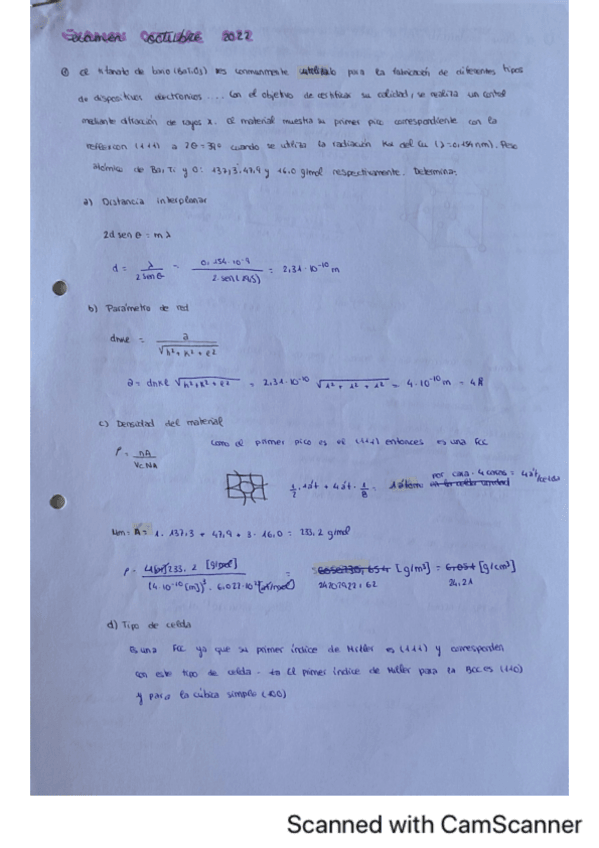 EXAMEN OCTUBRE 2022
① El titanato de bario (BaTiO3) es conmunmente utilizado para la fabricación de diferentes tipos
de dispositivos electronicos .... Con el objetivo de certificar su calidad, se realiza un control
mediante difracción de rayos X. El material muestra su primer pico correspondiente con la
reflexion (111) a 2θ = 39° cuando se utiliza la radiación Kα del Cu (λ=0,154 nm). Peso
atómico de Ba, Ti y O: 137,3; 47,9 y 16.0 g/mol respectivamente. Determina:
a) Distancia interplanar
2d sen θ = m λ
d = λ / 2 sen θ = 0,154·10^-9 / 2·sen(19,5) = 2,31·10^-10 m
b) Parámetro de red
dhkl = a / √h²+k²+l²
a = dhkl √h²+k²+l² = 2,31·10^-10 √1²+1²+1² = 4·10^-10 m = 4 Å
c) Densidad del material
Como el primer pico es el (111) entonces es una FCC
ρ = nA / Vc NA
por cara · 4 caras = 4 át/
1/2 · 1 át + 4 át · 1/8 = 1 átom
Mm = A = 1· 137,3 + 47,9 + 3· 16,0 = 233,2 g/mol
ρ = 233,2 [g/mol] / (4·10^-10 [m])³ · 6,022·10 = [g/m³] = [g/cm³]
24207922,62 24,21
d) Tipo de celda
Es una FCC ya que su primer índice de Miller es (111) y corresponden
con este tipo de celda. El primer índice de Miller para la BCC es (110)
y para la cúbica simple (100)
Scanned with CamScanner